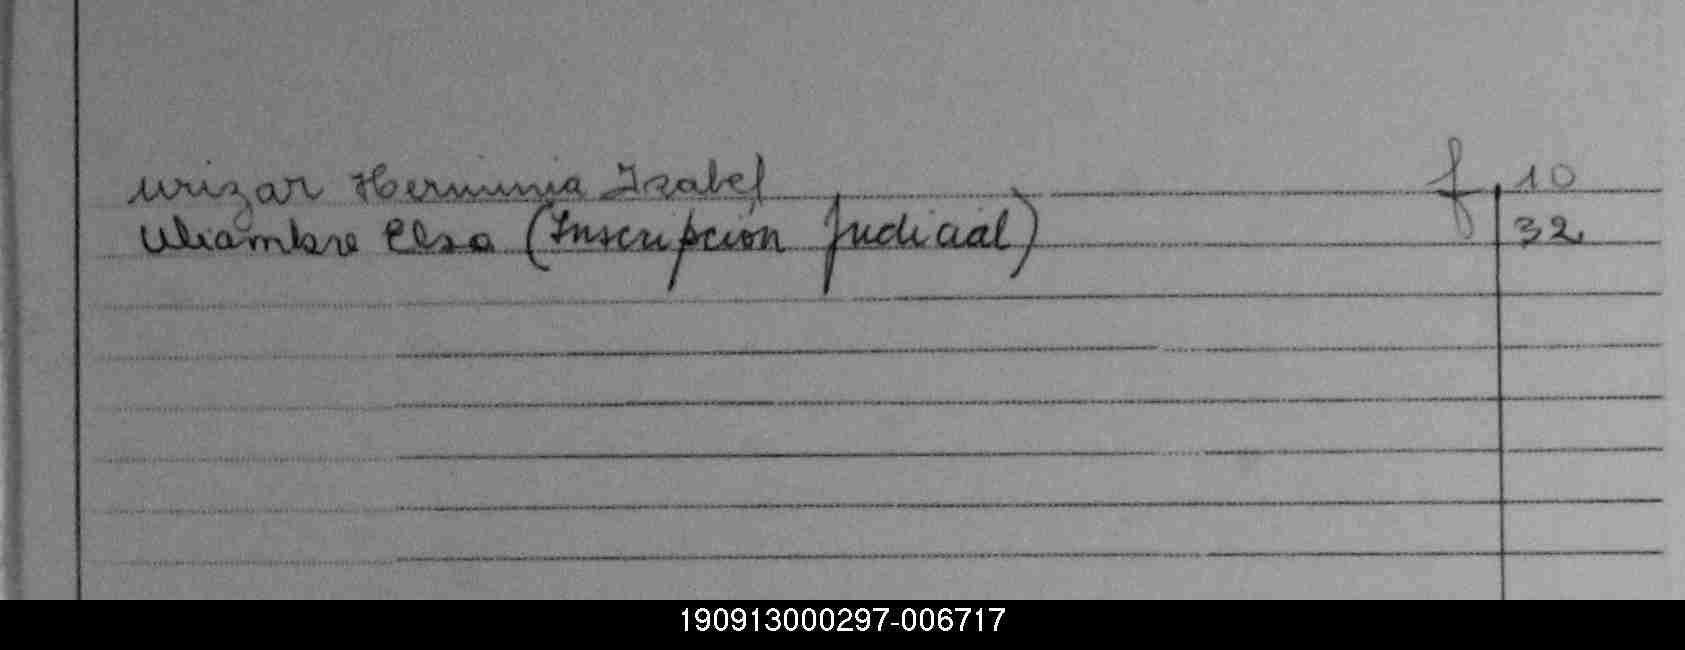 Urizar Herminia Izabel f 10
Uliambre Elsa (Inscripción Judicial) 32
190913000297-006717